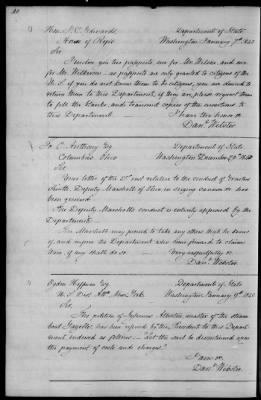 Hon. J. C. Edwards Department of State
House of Reps Washington January 7th
Sir
I enclose you two passports one for Mr. Wilson, and one
for Mr. Wilkerson — as passports are only granted to citizens of the
U. S. if you do not know them to be citizens, you are desired to
return them to this Department, if they are, please request them
to fill the blanks, and transmit copies of the to
this Department. I have the honor &c
Danl. Webster.
C. Anthony Esq Department of State
Columbus Ohio Washington December 29th
Sir
Your letter of the inst. relative to the conduct of
Smith, Deputy Marshall of Ohio in seizing cannon &c has
been received
The Deputy Marshall's conduct is entirely approved by the
Department.
The Marshall may provide to take any others that he hears
of, and inform the Department who come forward to claim
them, if any shall do so. — Very respectfully &c
Danl. Webster.
Ogden Hoffman Esq Department of State
U. S. Dist. Atty. New York. Washington January 9th
Sir,
The petition of master of the steam
boat has been referred by the President to this Depart-
ment endorsed as follows — "Let the suit be discontinued upon
the payment of costs and charges."
I am &c
Danl. Webster.